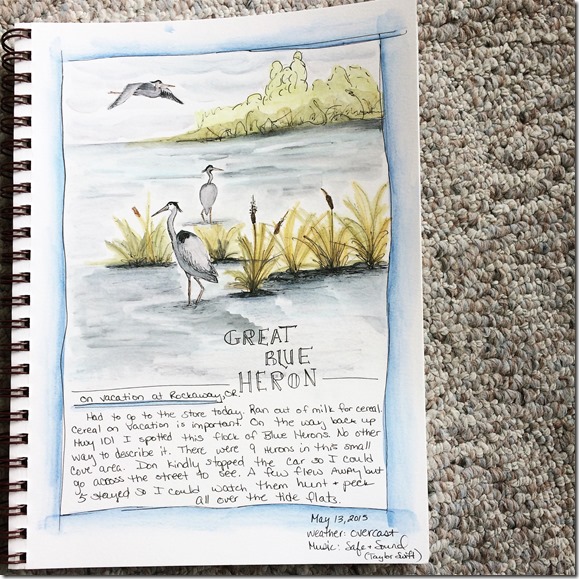 GREAT
BLUE
HERON
on vacation at Rockaway, OR.
Had to go to the store today. Ran out of milk for cereal.
Cereal on vacation is important. On the way back up
Hwy 101 I spotted this flock of Blue Herons. No other
way to describe it. There were 9 herons in this small
cove area. Don kindly stopped the car so I could
go across the street to see. A few flew away but
5 stayed so I could watch them hunt + peck
all over the tide flats.
May 13, 2015
weather: overcast
Music: Safe + Sound
(Taylor Swift)